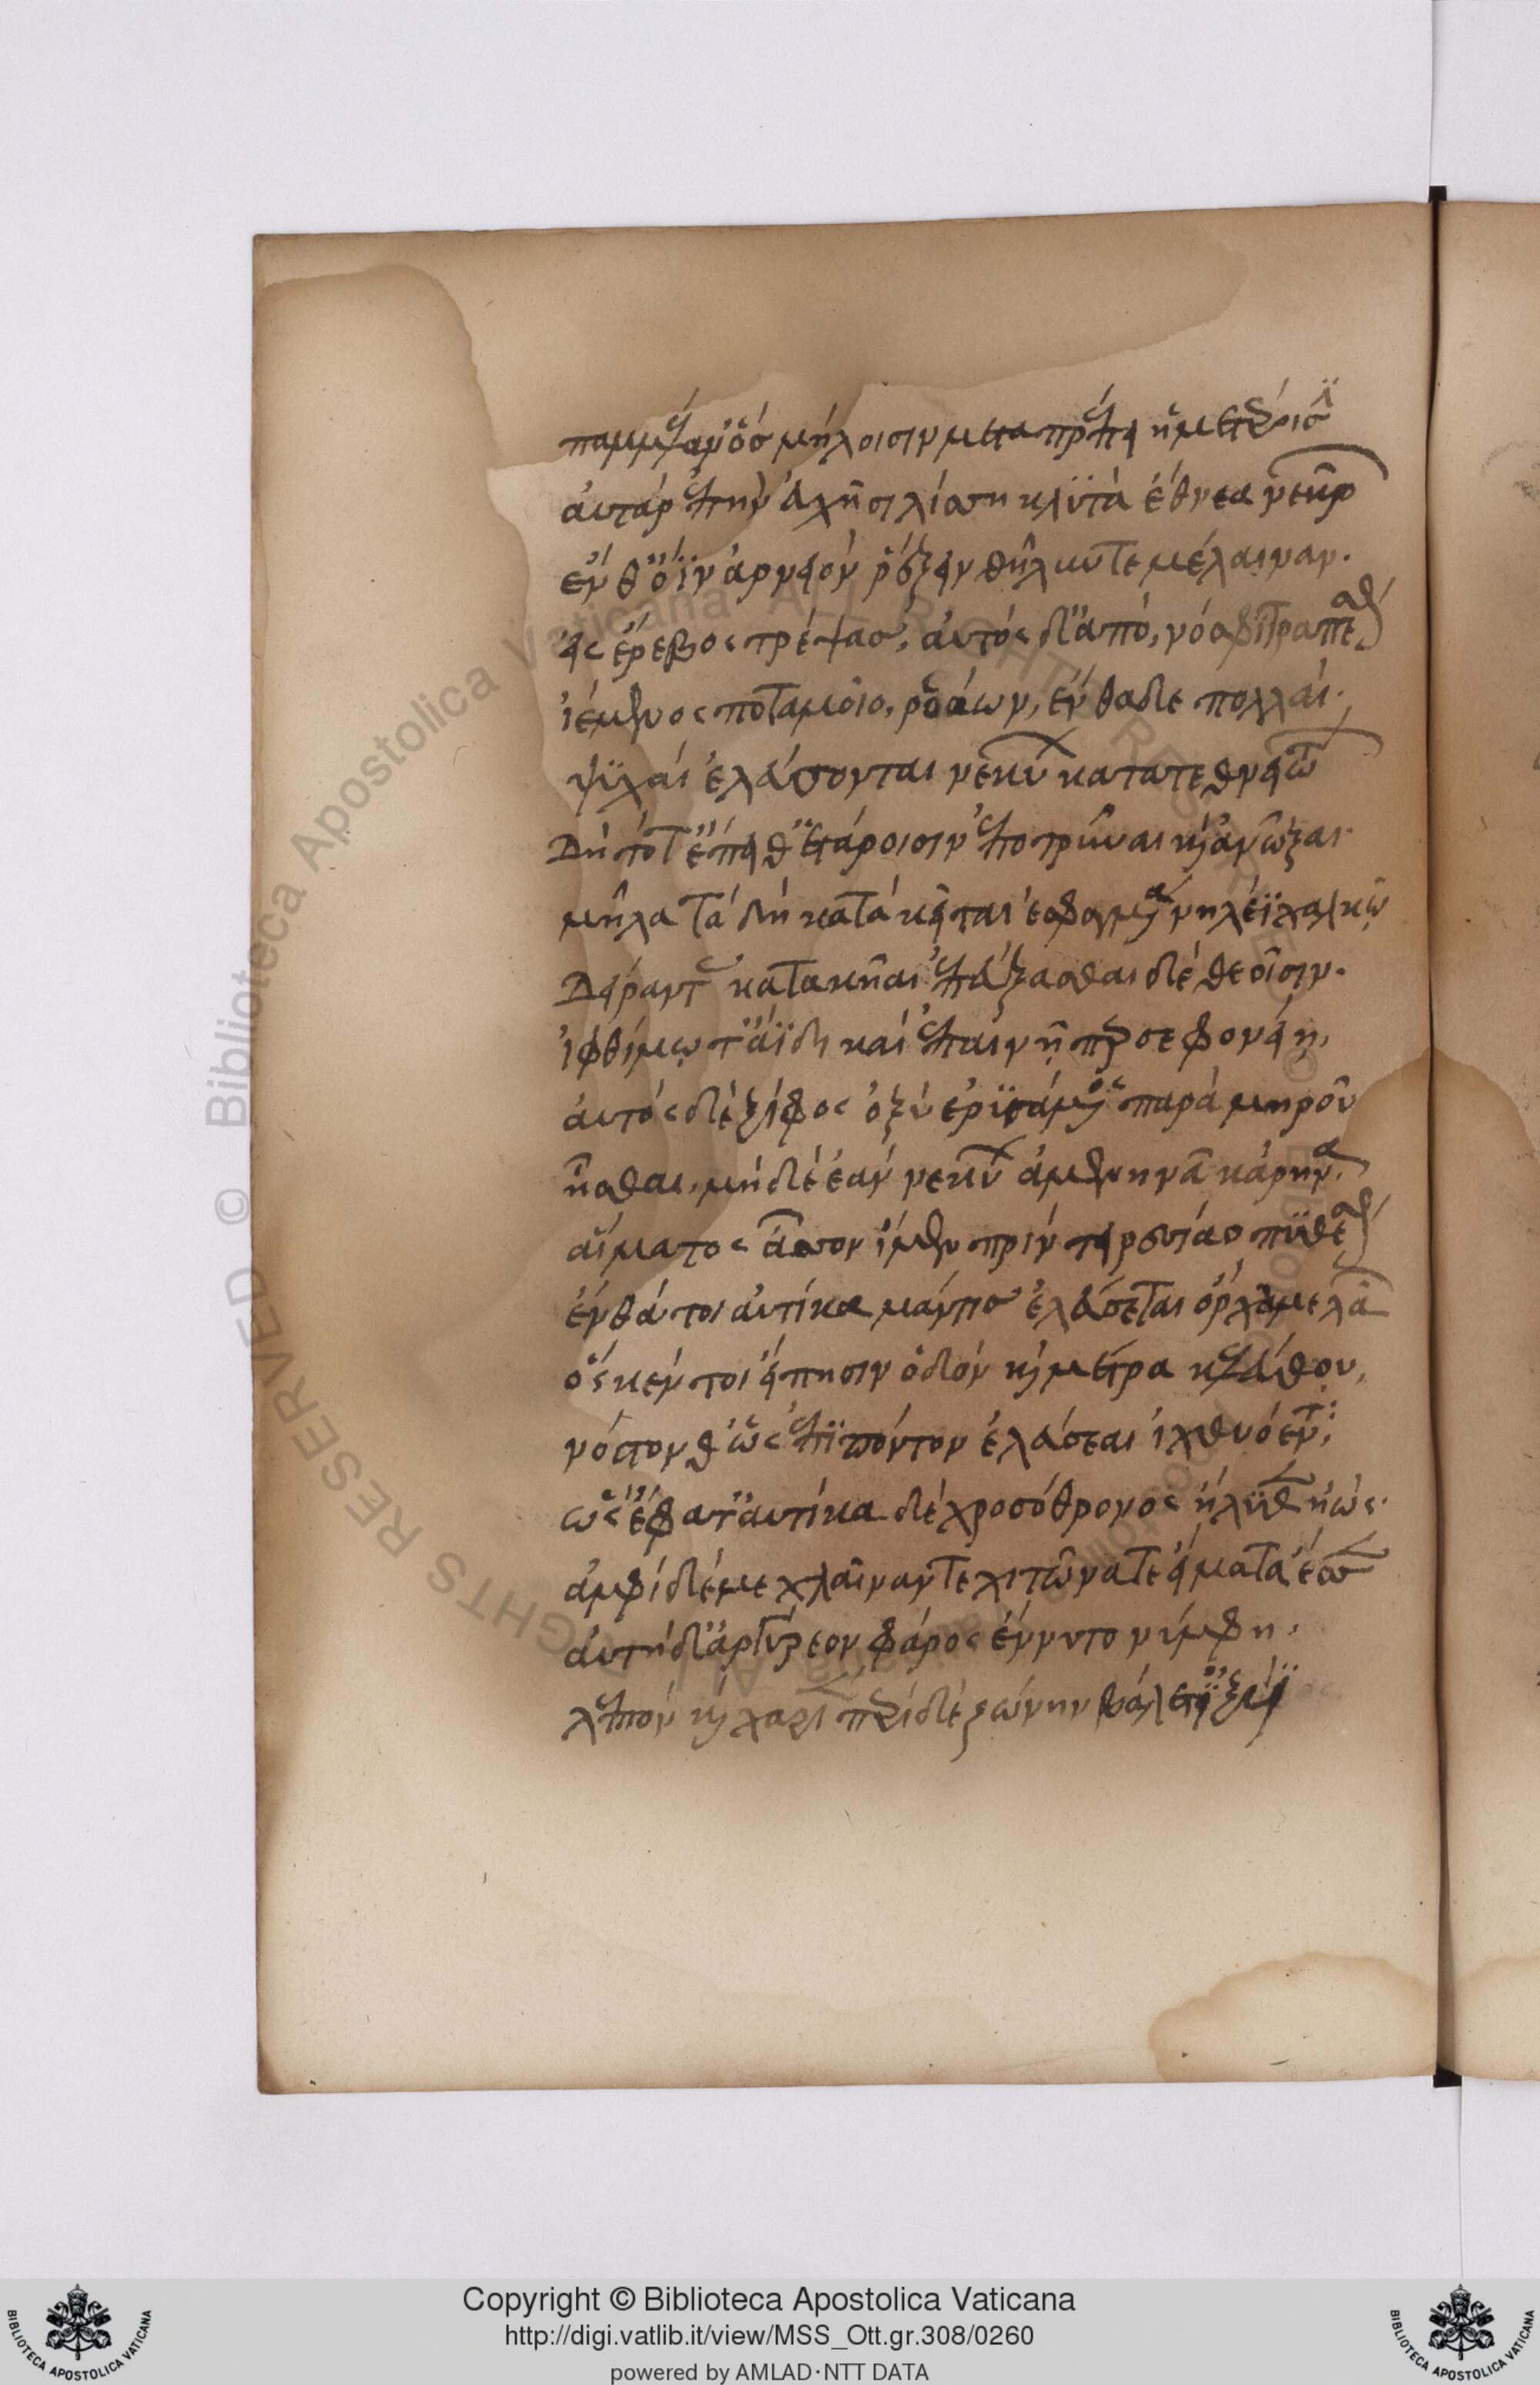 παμμέλαν ὃς μήλοισι μεταπρέπει ὑμετέροισι
αὐτὰρ ἐπὴν εὐχῇσι λίσῃ κλυτὰ ἔθνεα νεκρῶν
ἔνθ' ὄϊν ἀρνειὸν ῥέζειν θῆλυν τε μέλαιναν.
εἰς ἔρεβος στρέψας, αὐτὸς δ' ἀπὸ, νόσφι τραπέσθαι
ἱέμενος ποταμοῖο, ῥοάων, ἔνθα δὲ πολλαὶ.
ψυχαὶ ἐλεύσονται νεκύων κατατεθνειώτων
Δὴ τότ' ἔπειθ' ἑτάροισιν ἐποτρῦναι καὶ ἀνῶξαι
μῆλα τὰ δὴ κατάκειται ἐσφαγμένα νηλέϊ χαλκῷ
Δείραντας κατακῆαι ἐπεύξασθαι δὲ θεοῖσιν.
ἰφθίμῳ τ' ἀΐδῃ καὶ ἐπαινῇ περσεφονείῃ,
αὐτὸς δὲ ξίφος ὀξὺ ἐρυσάμενος παρὰ μηροῦ
ἧσθαι, μὴ δὲ ἐᾶν νεκύων ἀμενηνὰ κάρηνα.
αἵματος ἆσσον ἴμεν πρὶν τειρεσίαο πυθέσθαι
ἔνθά τοι αὐτίκα μάντις ἐλεύσεται ὄρχαμε λαῶν
ὅς κέν τοι εἴπῃσιν ὁδὸν καὶ μέτρα κελεύθου,
νόστον θ' ὡς ἐπὶ πόντον ἐλεύσεαι ἰχθυόεντα:
ὣς ἔφατ' αὐτίκα δὲ χρυσόθρονος ἤλυθεν ἠώς.
ἀμφὶ δέ με χλαῖναν τε χιτῶνα τε εἵματα ἕσσεν
αὐτὴ δ' ἀργύφεον φάρος ἕννυτο νύμφη,
λεπτὸν καὶ χαρίεν περὶ δὲ ζώνην βάλετ' ἰξυῖ
Copyright © Biblioteca Apostolica Vaticana
http://digi.vatlib.it/view/MSS_Ott.gr.308/0260
powered by AMLAD·NTT DATA